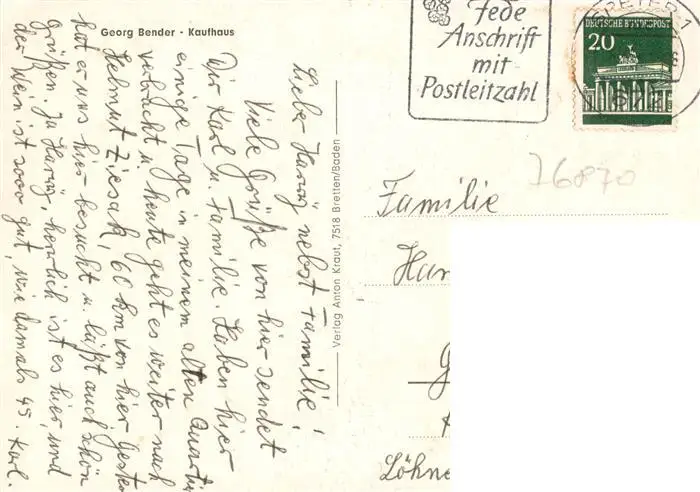 Georg Bender - Kaufhaus
Lieber Harry nebst Familie!
Viele Grüße von hier sendet
Dir Karl u. Familie. Haben hier
einige Tage in meinem alten Quarti
verbracht u. heute geht es weiter nach
Helmut Ziesak, 60 km von hier. Gester
hat er uns hier besucht u. läßt auch schön
grüßen. Ja Harry, herrlich ist es hier, und
der Wein ist sooo gut, wie damals 45. Karl.
Verlag Anton Kraut, 7518 Bretten/Baden
Jede
Anschrift
mit
Postleitzahl
DEUTSCHE BUNDESPOST
20
76870
Familie
Har
Löhne